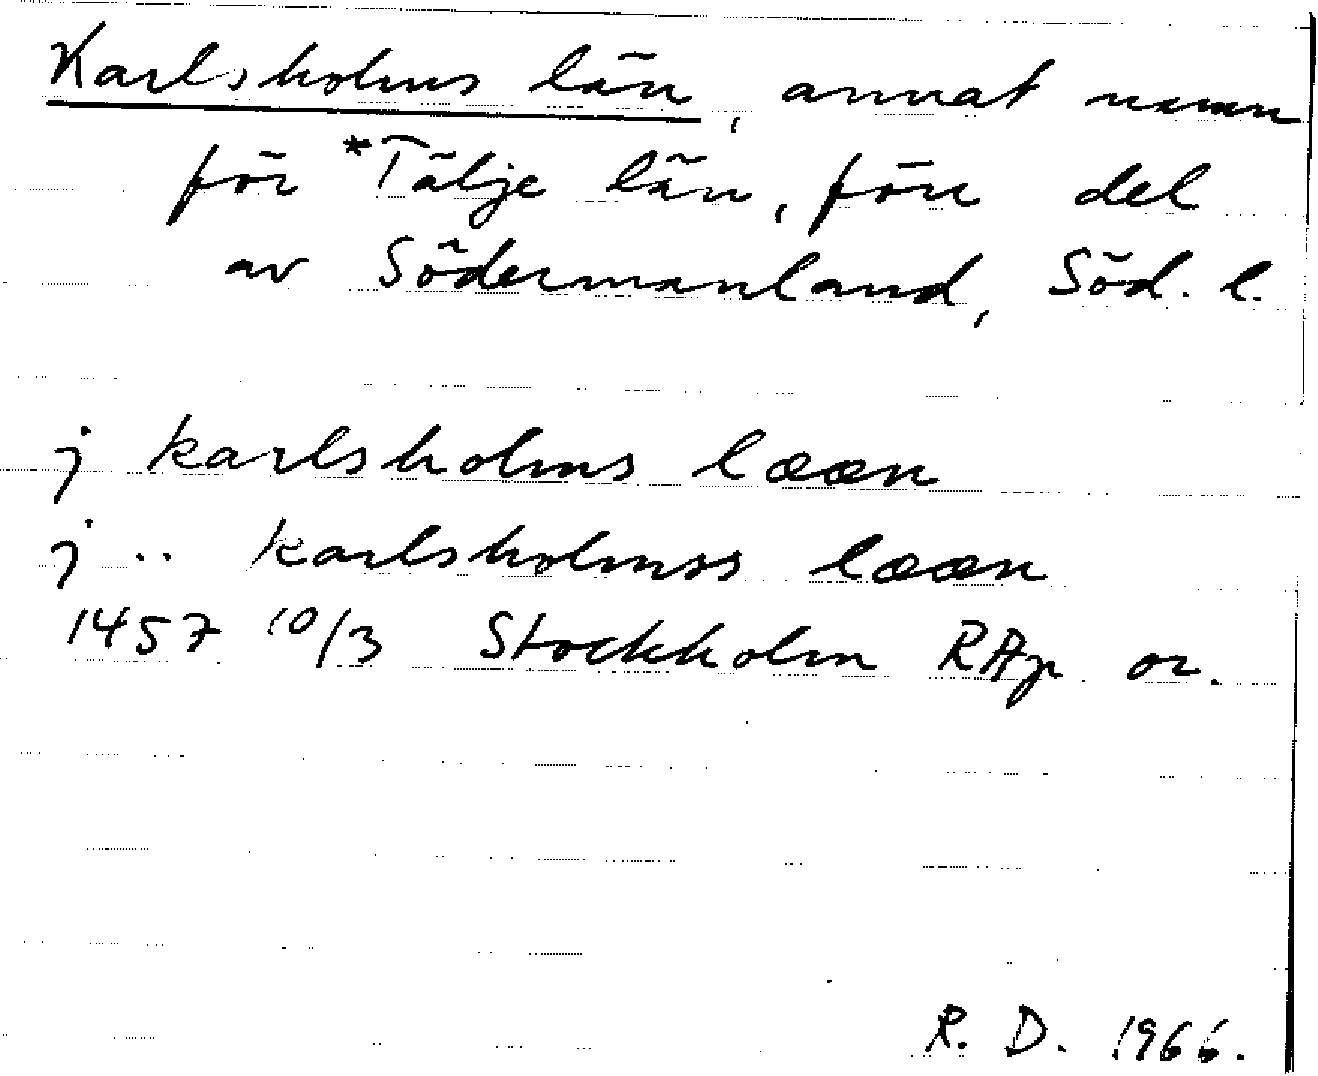 Karlsholms län, annat namn
för *Tälje län, förr del
av Södermanland, Söd. l.
j karlsholms lææn
j .. karlsholmss lææn
1457 10/3 Stockholm RAp or.
R. D. 1966.